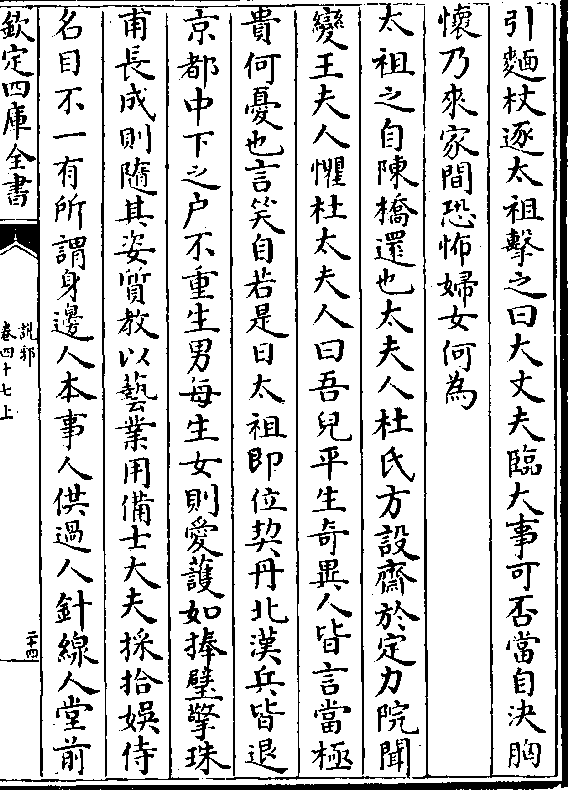 引麵杖逐太祖擊之曰大丈夫臨大事可否當自決胸
懷乃來家間恐怖婦女何為
太祖之自陳橋還也太夫人杜氏方設齋於定力院聞
變王夫人懼杜太夫人曰吾兒平生奇異人皆言當極
貴何憂也言笑自若是日太祖即位契丹北漢兵皆退
京都中下之户不重生男每生女則愛護如捧璧擎珠
甫長成則隨其姿質教以藝業用備士大夫採拾娛侍
名目不一有所謂身邊人本事人供過人針線人堂前
欽定四庫全書
說郛
卷四十七上
二十四